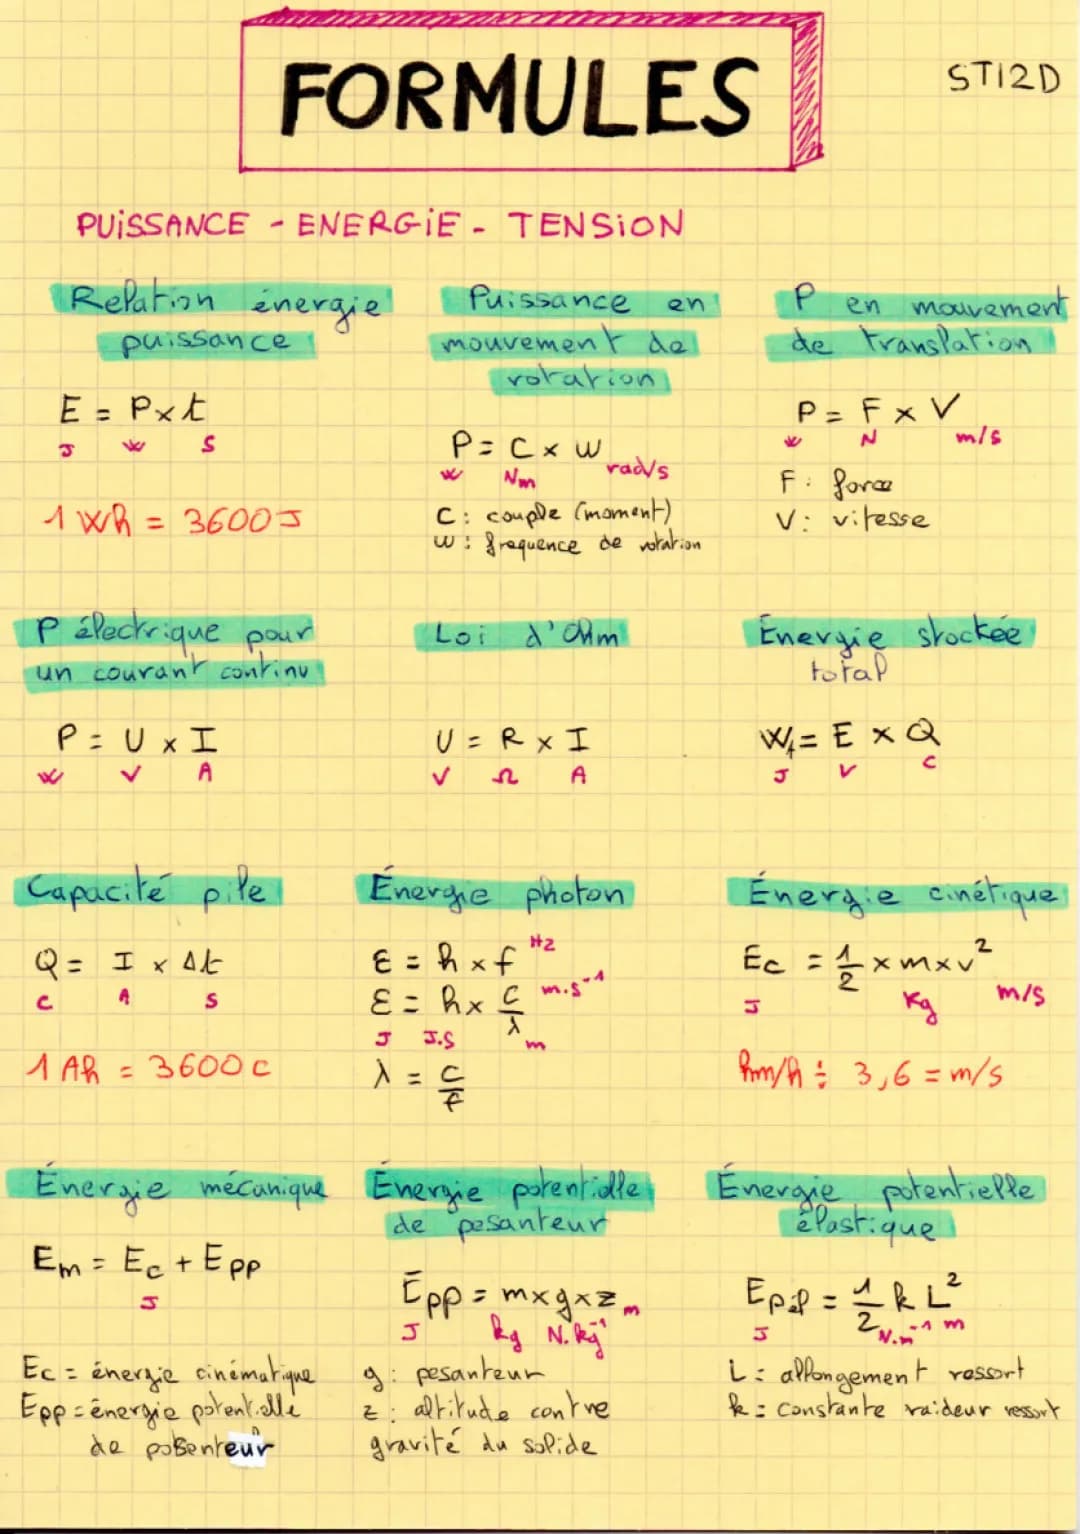 FORMULES
STI2D
PUISSANCE - ENERGIE - TENSION
Relation énergie
puissance
E = P x t
J W S
1 Wh = 3600 J
Puissance en
mouvement de
rotation
P = C x w
W Nm rad/s
C : couple (moment)
w : frequence de rotation
P en mouvement
de translation
P = F x V
W N m/s
F : force
V : vitesse
P électrique pour
un courant continu
P = U x I
W V A
Loi d'Ohm
U = R x I
V Ω A
Énergie stockée
total
Wt = E x Q
J V C
Capacité pile
Q = I x Δt
C A S
1 Ah = 3600 C
Énergie photon
E = h x f Hz
E = h x c/λ m.s⁻¹
J J.S m
λ = c/f
Énergie cinétique
Ec = 1/2 x m x v²
J Kg m/s
km/h ÷ 3,6 = m/s
Énergie mécanique
Em = Ec + Epp
J
Ec = énergie cinématique
Epp = énergie potentielle
de posenteur
Énergie potentielle
de pesanteur
Epp = m x g x z
J kg N.kg⁻¹ m
g : pesanteur
z : altitude contre
gravité du solide
Énergie potentielle
élastique
Epél = 1/2 k L²
J N.m⁻¹ m
L = allongement rossort
k = constante raideur ressort